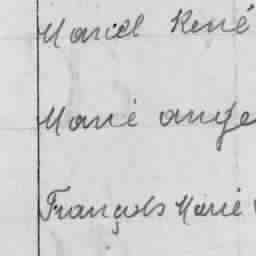 Marcel René
Marie ange
François Marie